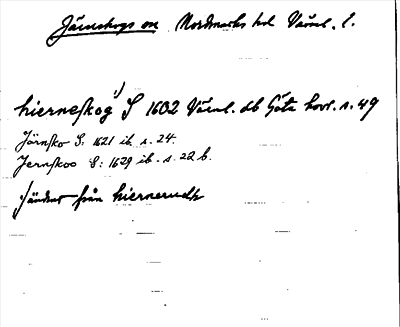 Järnskogs sn Nordmarks hd Värml. l.
hierneskog¹⁾ S 1602 Värml. db Göta hovr. s. 49
Järnsko S: 1621 ib s. 24.
Jernskoo S: 1629 ib. s. 22 b.
¹⁾ ändrat från hiernerudh